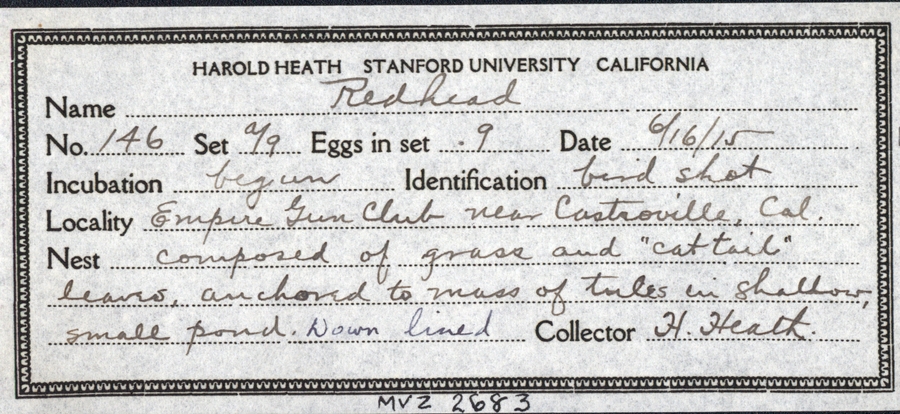 HAROLD HEATH STANFORD UNIVERSITY CALIFORNIA
Name Redhead
No. 146 Set a/9 Eggs in set 9 Date 6/16/15
Incubation begun Identification bird shot
Locality Empire Gun Club near Castroville, Cal.
Nest composed of grass and "cat tail"
leaves, anchored to mass of tules in shallow,
small pond. Down lined Collector H. Heath.
MVZ 2683